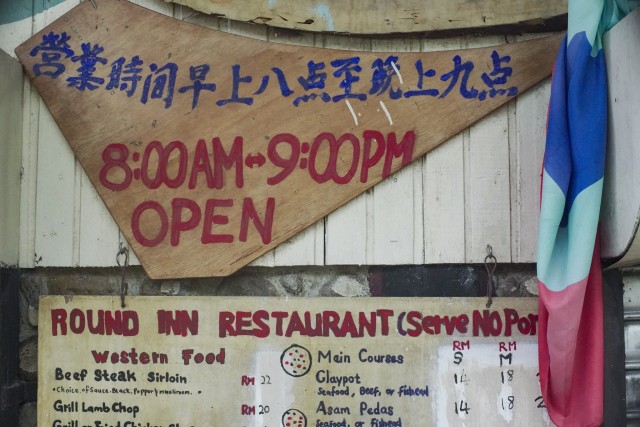 營業時间早上八点至晚上九点
8:00AM↔9:00PM
OPEN
ROUND INN RESTAURANT (Serve NO Por
Western Food
Beef Steak Sirloin RM 22
*Choice of Sauce: Black Pepper / mushroom.
Grill Lamb Chop RM 20
Grill or Fried Chicken
Main Courses RM S RM M
Claypot 14 18 2
Seafood, Beef, or Fishead
Asam Pedas 14 18 2
Seafood, or fishead